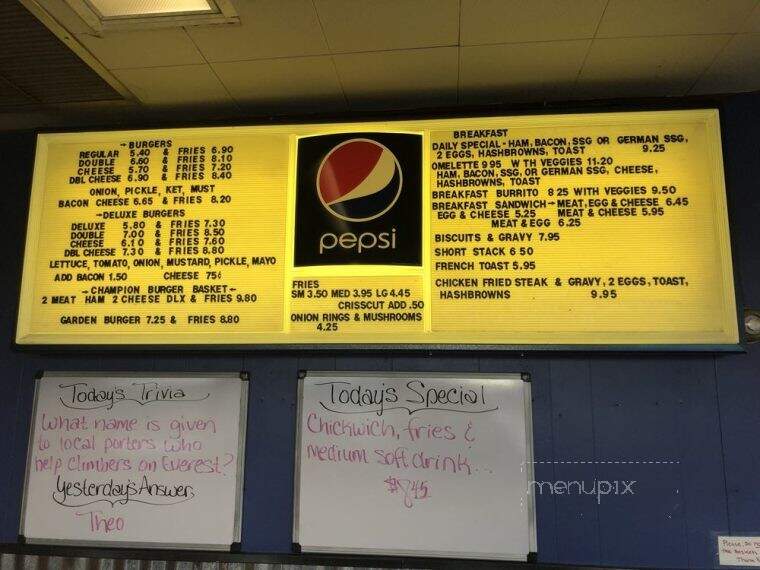 BURGERS
REGULAR 5.40 & FRIES 6.90
DOUBLE 6.60 & FRIES 8.10
CHEESE 5.70 & FRIES 7.20
DBL CHEESE 6.90 & FRIES 8.40
ONION, PICKLE, KET, MUST
BACON CHEESE 6.65 & FRIES 8.20
DELUXE BURGERS
DELUXE 5.80 & FRIES 7.30
DOUBLE 7.00 & FRIES 8.50
CHEESE 6.10 & FRIES 7.60
DBL CHEESE 7.30 & FRIES 8.80
LETTUCE, TOMATO, ONION, MUSTARD, PICKLE, MAYO
ADD BACON 1.50 CHEESE 75¢
CHAMPION BURGER BASKET
2 MEAT HAM 2 CHEESE DLX & FRIES 9.80
GARDEN BURGER 7.25 & FRIES 8.80
pepsi
FRIES
SM 3.50 MED 3.95 LG 4.45
CRISSCUT ADD .50
ONION RINGS & MUSHROOMS
4.25
BREAKFAST
DAILY SPECIAL - HAM, BACON, SSG OR GERMAN SSG,
2 EGGS, HASHBROWNS, TOAST 9.25
OMELETTE 9 95 W TH VEGGIES 11.20
HAM, BACON, SSG, OR GERMAN SSG, CHEESE,
HASHBROWNS, TOAST
BREAKFAST BURRITO 8 25 WITH VEGGIES 9.50
BREAKFAST SANDWICH MEAT, EGG & CHEESE 6.45
EGG & CHEESE 5.25 MEAT & CHEESE 5.95
MEAT & EGG 6.25
BISCUITS & GRAVY 7.95
SHORT STACK 6 50
FRENCH TOAST 5.95
CHICKEN FRIED STEAK & GRAVY, 2 EGGS, TOAST,
HASHBROWNS 9.95
Today's Trivia
What name is given
to local porters who
help climbers on Everest?
Yesterday's Answer
Theo
Today's Special
Chickwich, fries &
medium soft drink...
$8.45
menupix
Please, do